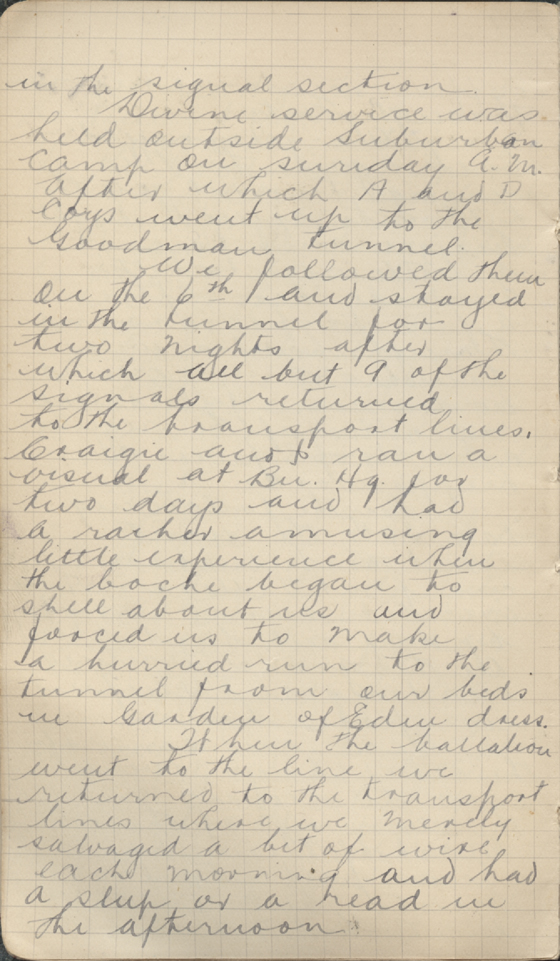 in the signal section.
Divine service was
held outside Suburban
Camp on sunday A.M.
after which A and D
Coys went up to the
Goodman tunnel.
We followed them
on the 6th and stayed
in the tunnel for
two nights after
which all but 9 of the
signals returned
to the transport lines.
Craigie and I ran a
visual at Bn. Hq. for
two days and had
a rather amusing
little experience when
the boche began to
shell about us and
forced us to make
a hurried run to the
tunnel from our beds
in Garden of Eden dress.
When the battalion
went to the line we
returned to the transport
lines where we merely
salvaged a bit of wire
each morning and had
a sleep or a read in
the afternoon.